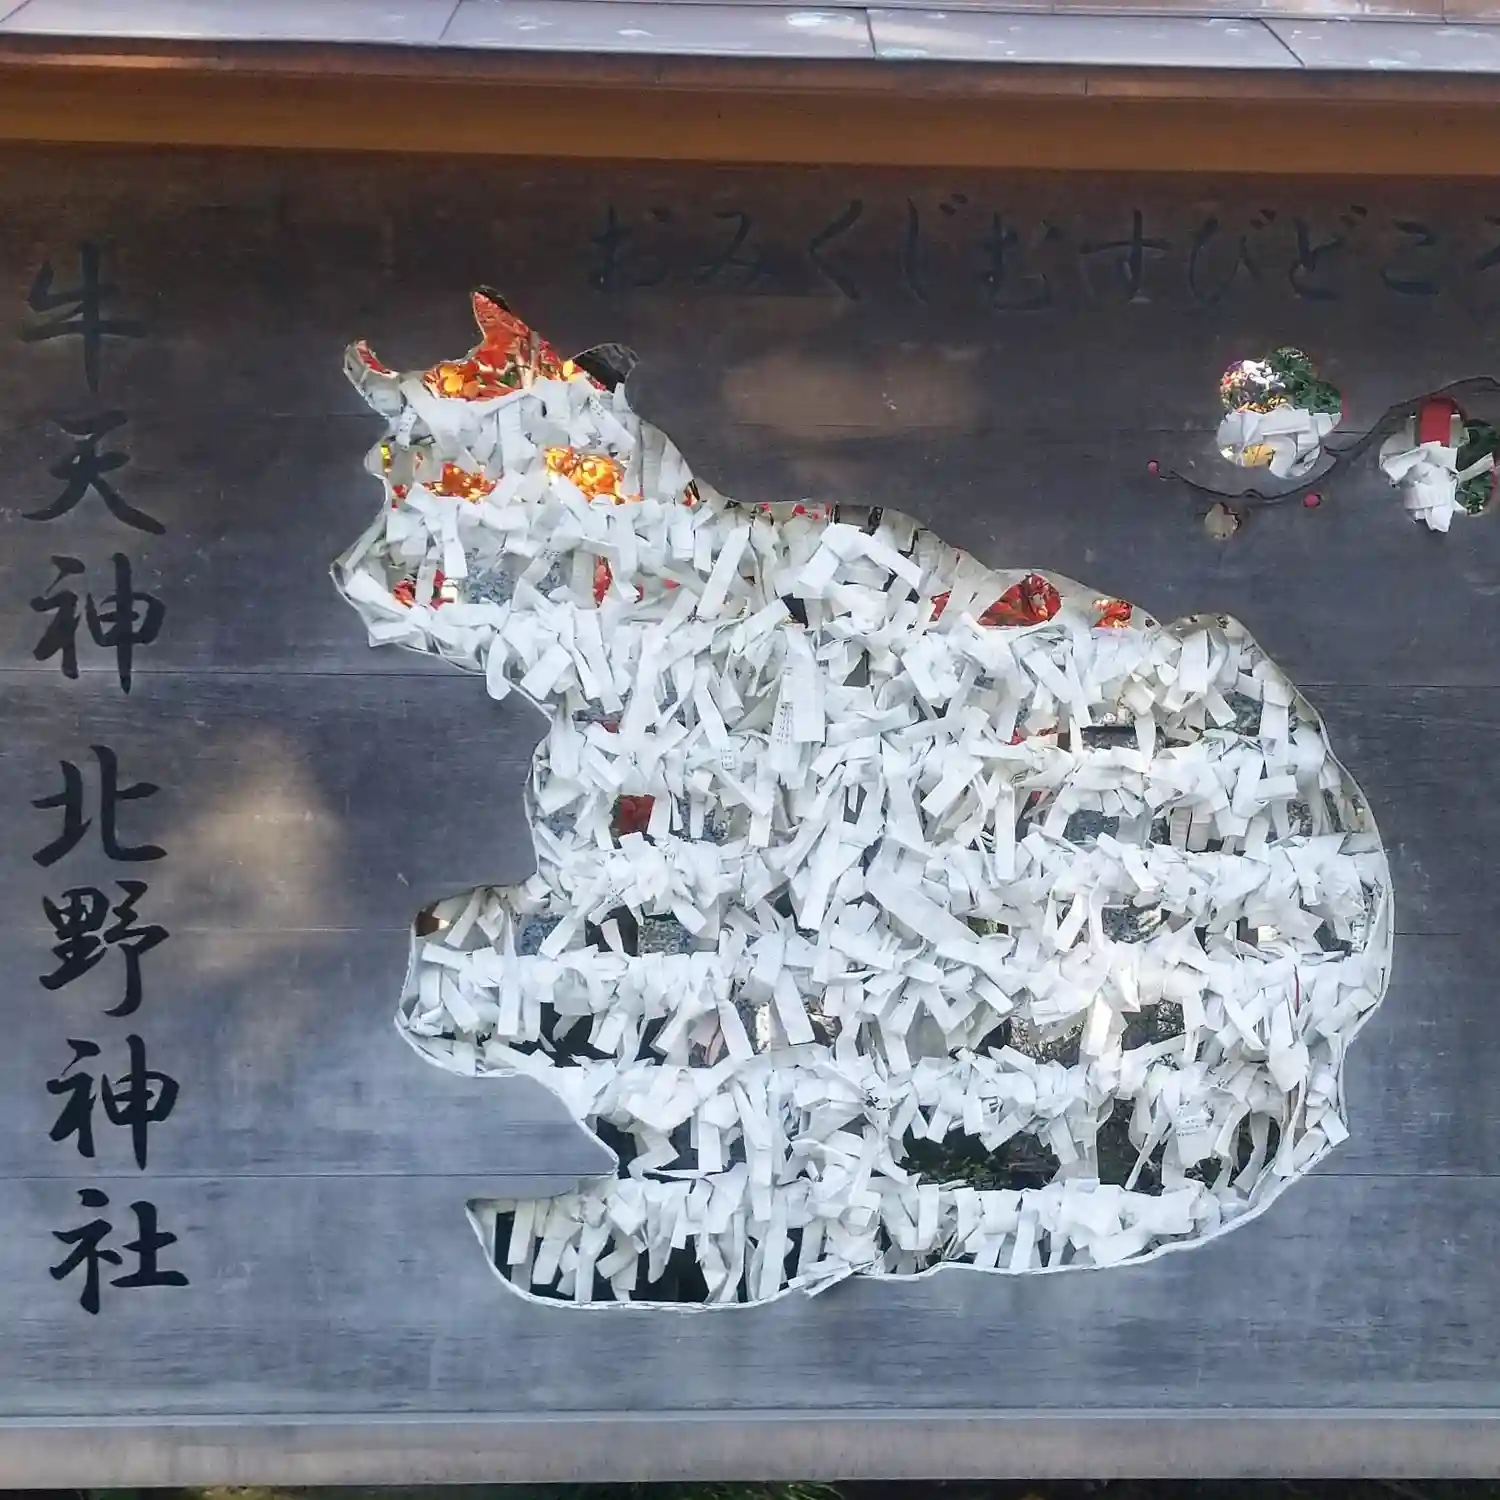 おみくじむすびどころ
牛天神北野神社